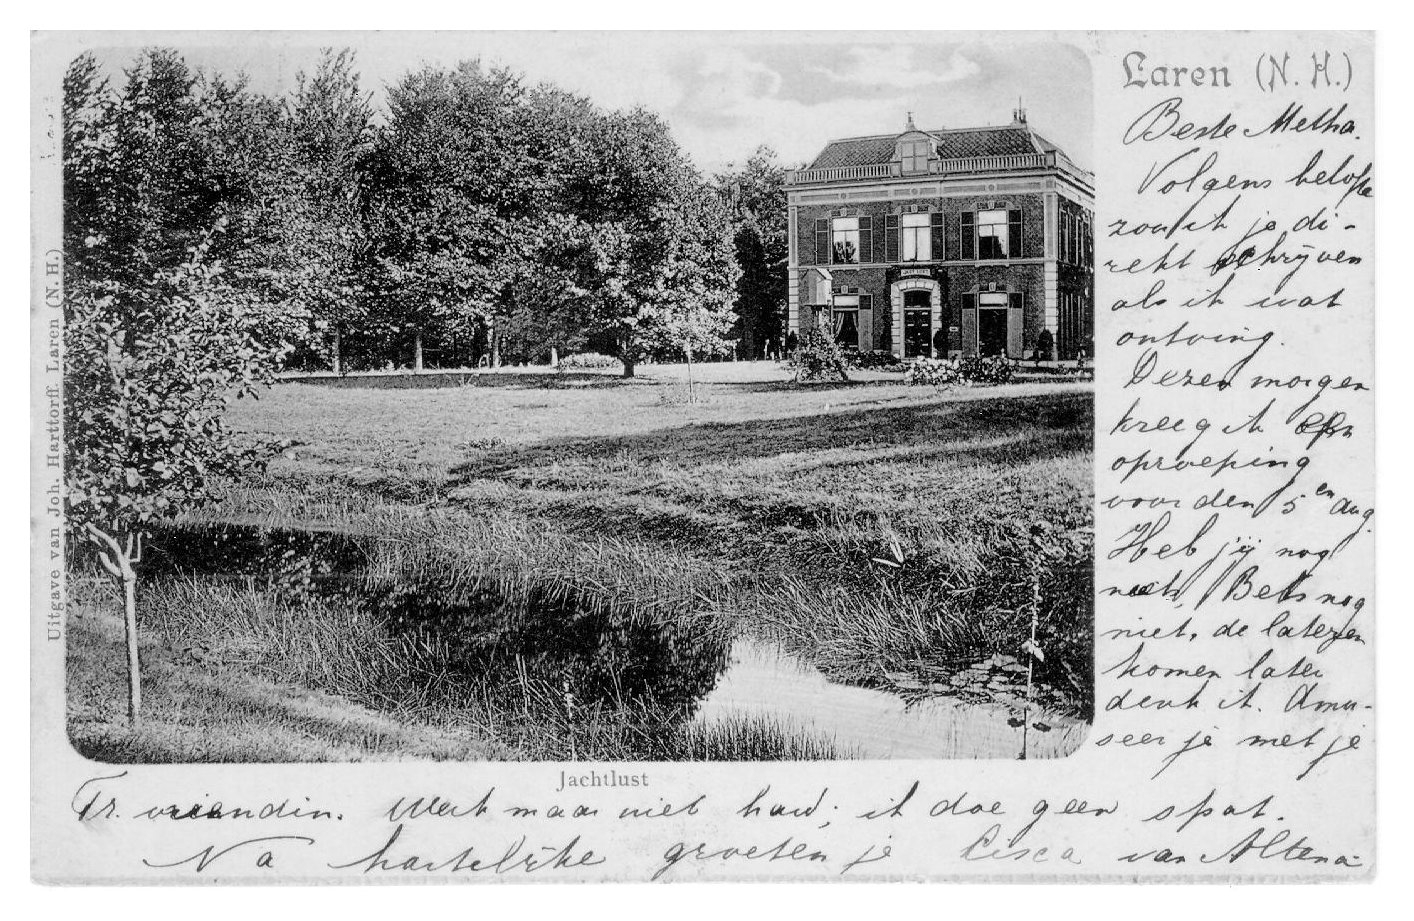 Laren (N. H.)
Beste Metha.
Volgens belofte
zou ik je di-
rekt schrijven
als ik wat
ontving.
Dezen morgen
kreeg ik een
oproeping
voor den 5en Aug.
Heb jij nog
niets, Bets nog
niet, de lateren
komen later
denk ik. Amu-
seer je met je
Fr. vriendin. Werk maar niet hard; ik doe geen spat.
Na hartelijke groeten je Cisca van Altena
Jachtlust
Uitgave van Joh. Harttorff. Laren (N. H.)